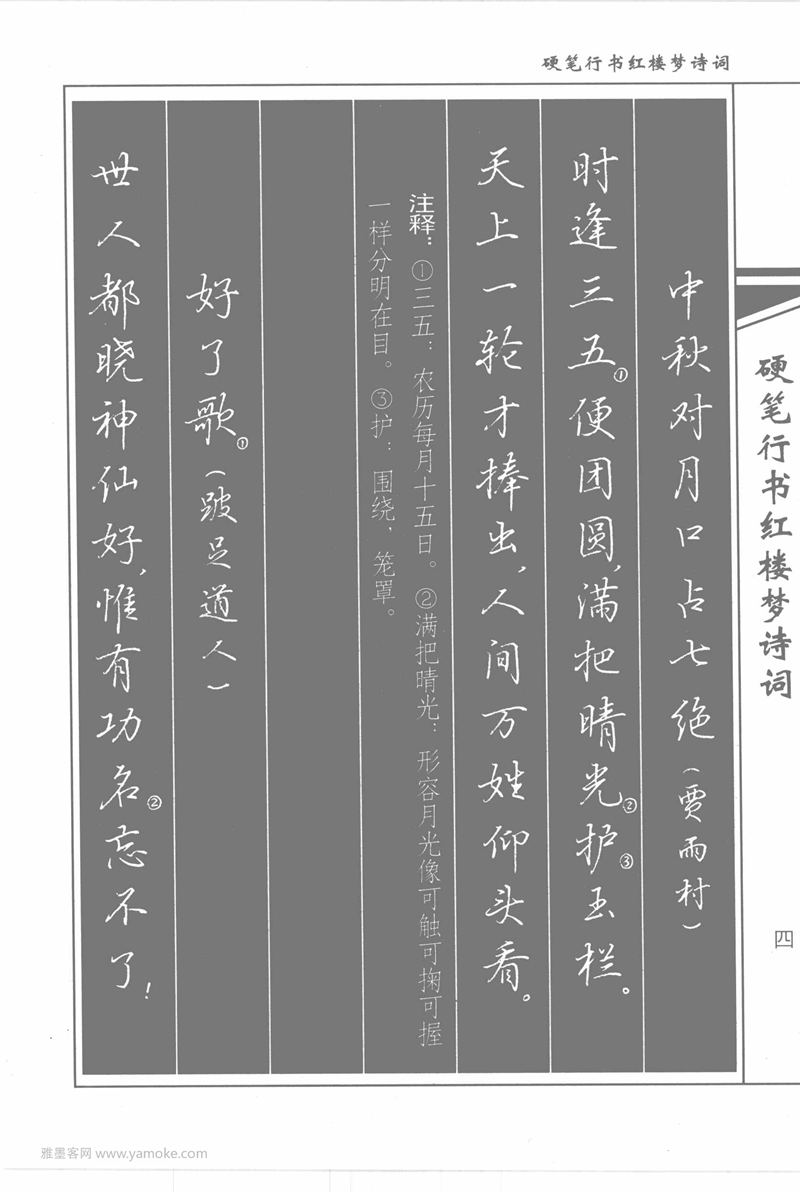 硬笔行书红楼梦诗词
中秋对月口占七绝(贾雨村)
时逢三五①便团圆,满把晴光②护③玉栏。
天上一轮才捧出,人间万姓仰头看。
注释:①三五:农历每月十五日。②满把晴光:形容月光像可触可掬可握
一样分明在目。③护:围绕,笼罩。
好了歌①(跛足道人)
世人都晓神仙好,惟有功名②忘不了!
硬笔行书红楼梦诗词
四
雅墨客网 www.yamoke.com